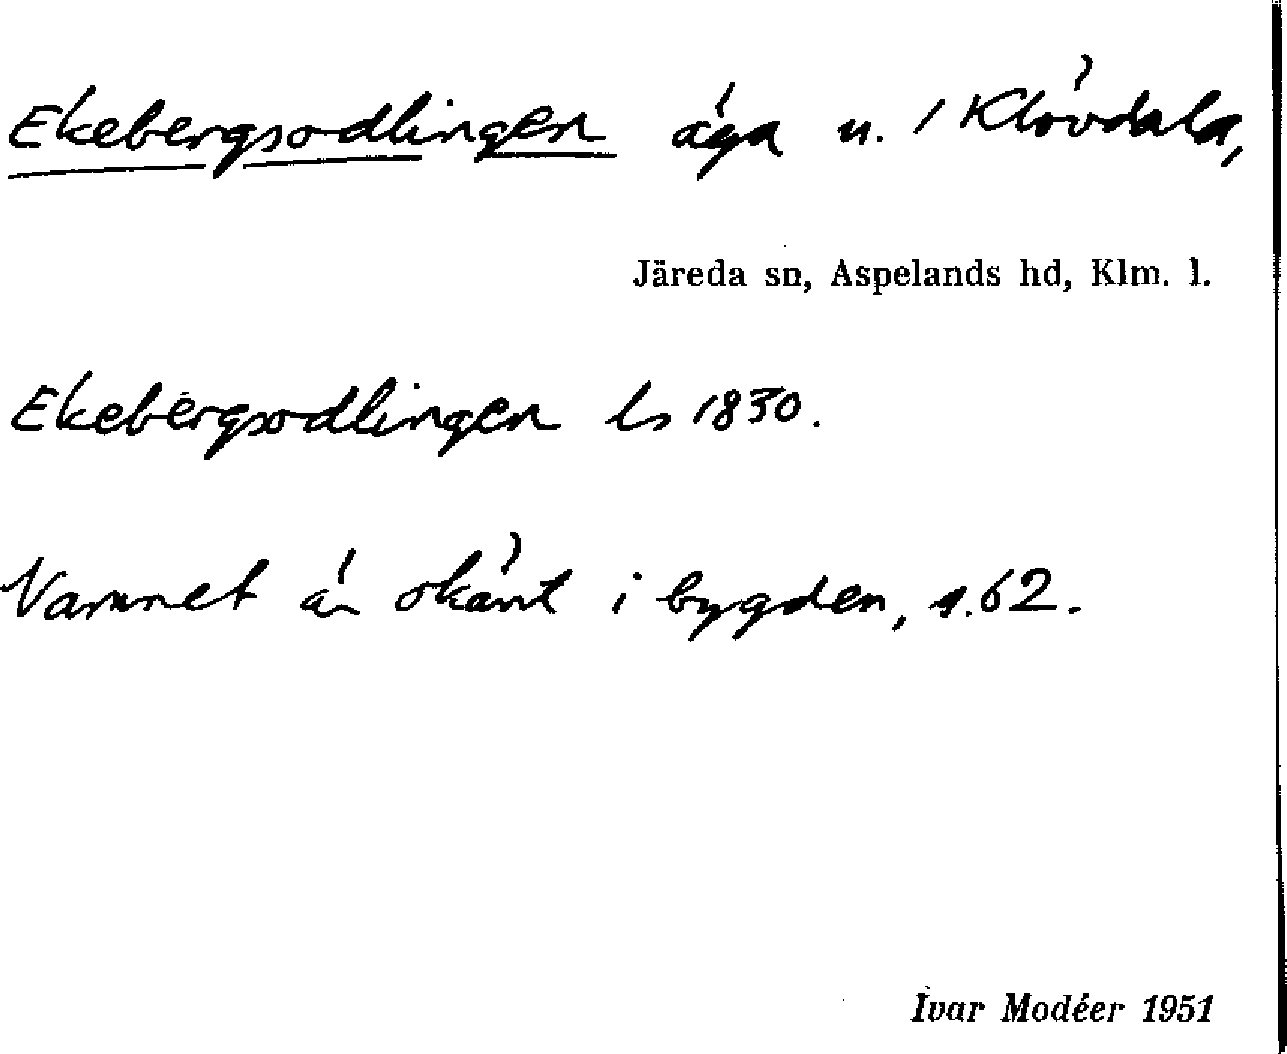 Ekebergsodlingen äga u. 1 Klövdala,
Järeda sn, Aspelands hd, Klm. l.
Ekebergsodlingen ls 1830.
Namnet är okänt i bygden, s. 62.
Ivar Modéer 1951